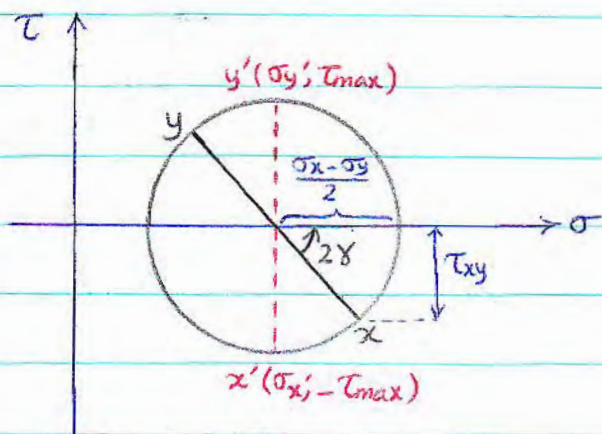 τ
y'(σy', τmax)
y
σx-σy
2
σ
2γ
τxy
x
x'(σx', -τmax)